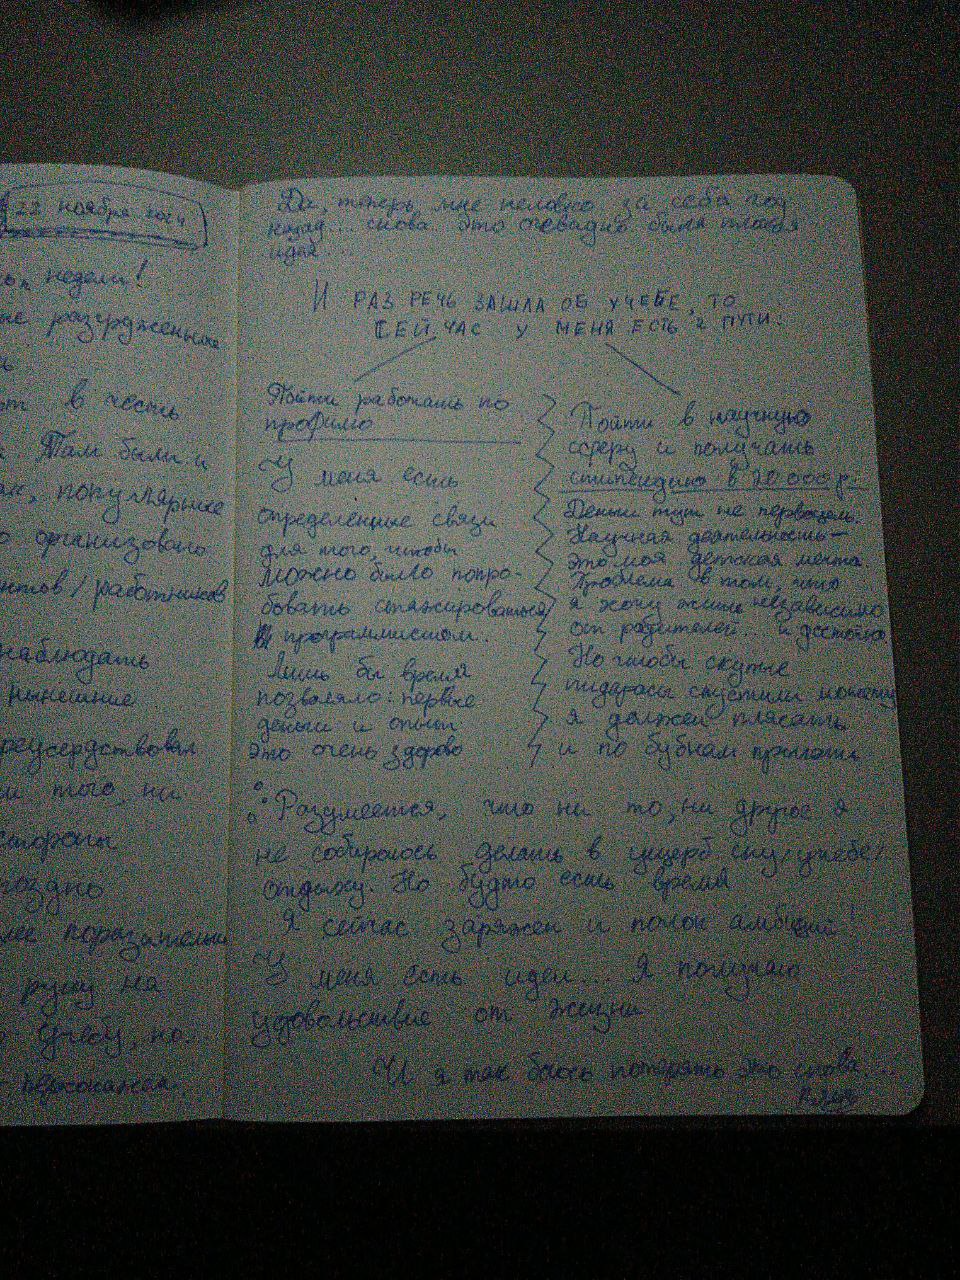 22 ноября 2024
недели!
разгряженные
в честь
Там были и
популярные
организовано
/ работников
наблюдать
нынешние
переусердствовал
того, ни
стороны
поздно
более поразительны
руку на
учебу, но
Да, теперь мне неловко за себя год
назад... снова. Это очевидно была плохая
идея...
И РАЗ РЕЧЬ ЗАШЛА ОБ УЧЕБЕ, ТО
СЕЙЧАС У МЕНЯ ЕСТЬ 2 ПУТИ:
Пойти работать по
профилю
У меня есть
определенные связи
для того, чтобы
можно было попро-
бовать стажироваться
программистом.
Лишь бы время
позволяло: первые
деньги и опыт
это очень здорово
Пойти в научную
сферу и получать
стипендию в 20 000 р.
Деньги тут не первоцель.
Научная деятельность —
это моя детская мечта
Проблема в том, что
я хочу жить независимо
от родителей... и достойно
Но чтобы скупые
пидарасы спустили монетку
я должен плясать
и по бубнам
Разумеется, что ни то, ни другое я
не собираюсь делать в ущерб сну/учебе/
отдыху. Но будто есть время
Я сейчас заряжен и полон амбиций!
У меня есть идеи... Я получаю
удовольствие от жизни
И я так боюсь потерять это снова...